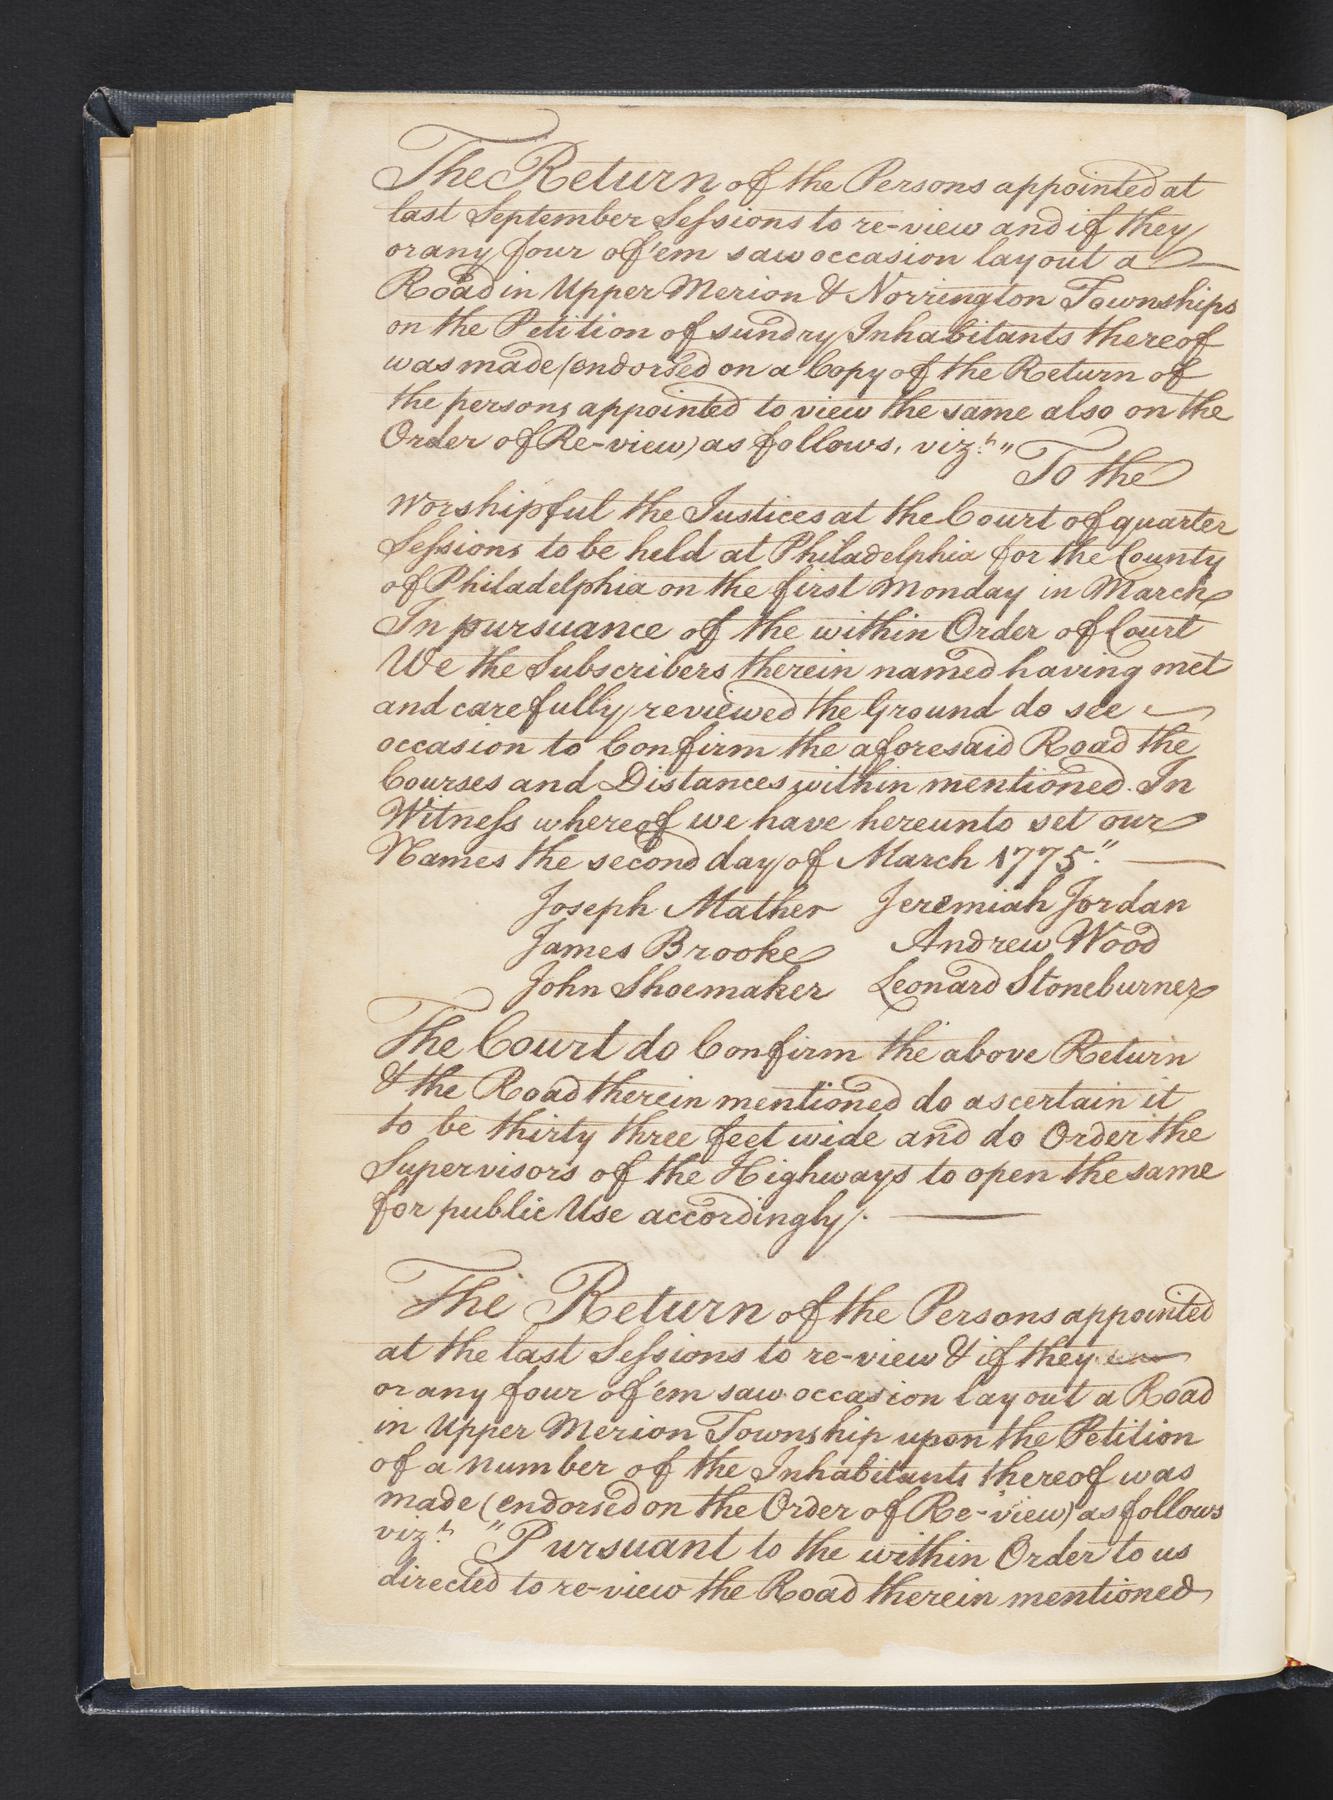 The Return of the Persons appointed at
last September Sessions to re-view and if they
or any four of 'em saw occasion lay out a
Road in Upper Merion & Norrington Townships
on the Petition of sundry Inhabitants thereof
was made (endorsed on a Copy of the Return of
the persons appointed to view the same also on the
Order of Re-view) as follows, vizt. "To the
Worshipful the Justices at the Court of quarter
Sessions to be held at Philadelphia for the County
of Philadelphia on the first Monday in March
In pursuance of the within Order of Court
We the Subscribers therein named having met
and carefully reviewed the Ground do see
occasion to Confirm the aforesaid Road the
Courses and Distances within mentioned. In
Witness whereof we have hereunto set our
Names the second day of March 1775."
Joseph Mather Jeremiah Jordan
James Brooke Andrew Wood
John Shoemaker Leonard Stoneburner
The Court do Confirm the above Return
& the Road therein mentioned do ascertain it
to be thirty three feet wide and do Order the
Supervisors of the Highways to open the same
for public Use accordingly.
The Return of the Persons appointed
at the last Sessions to re-view & if they
or any four of 'em saw occasion lay out a Road
in Upper Merion Township upon the Petition
of a number of the Inhabitants thereof was
made (endorsed on the Order of Re-view) as follows
vizt. "Pursuant to the within Order to us
directed to re-view the Road therein mentioned